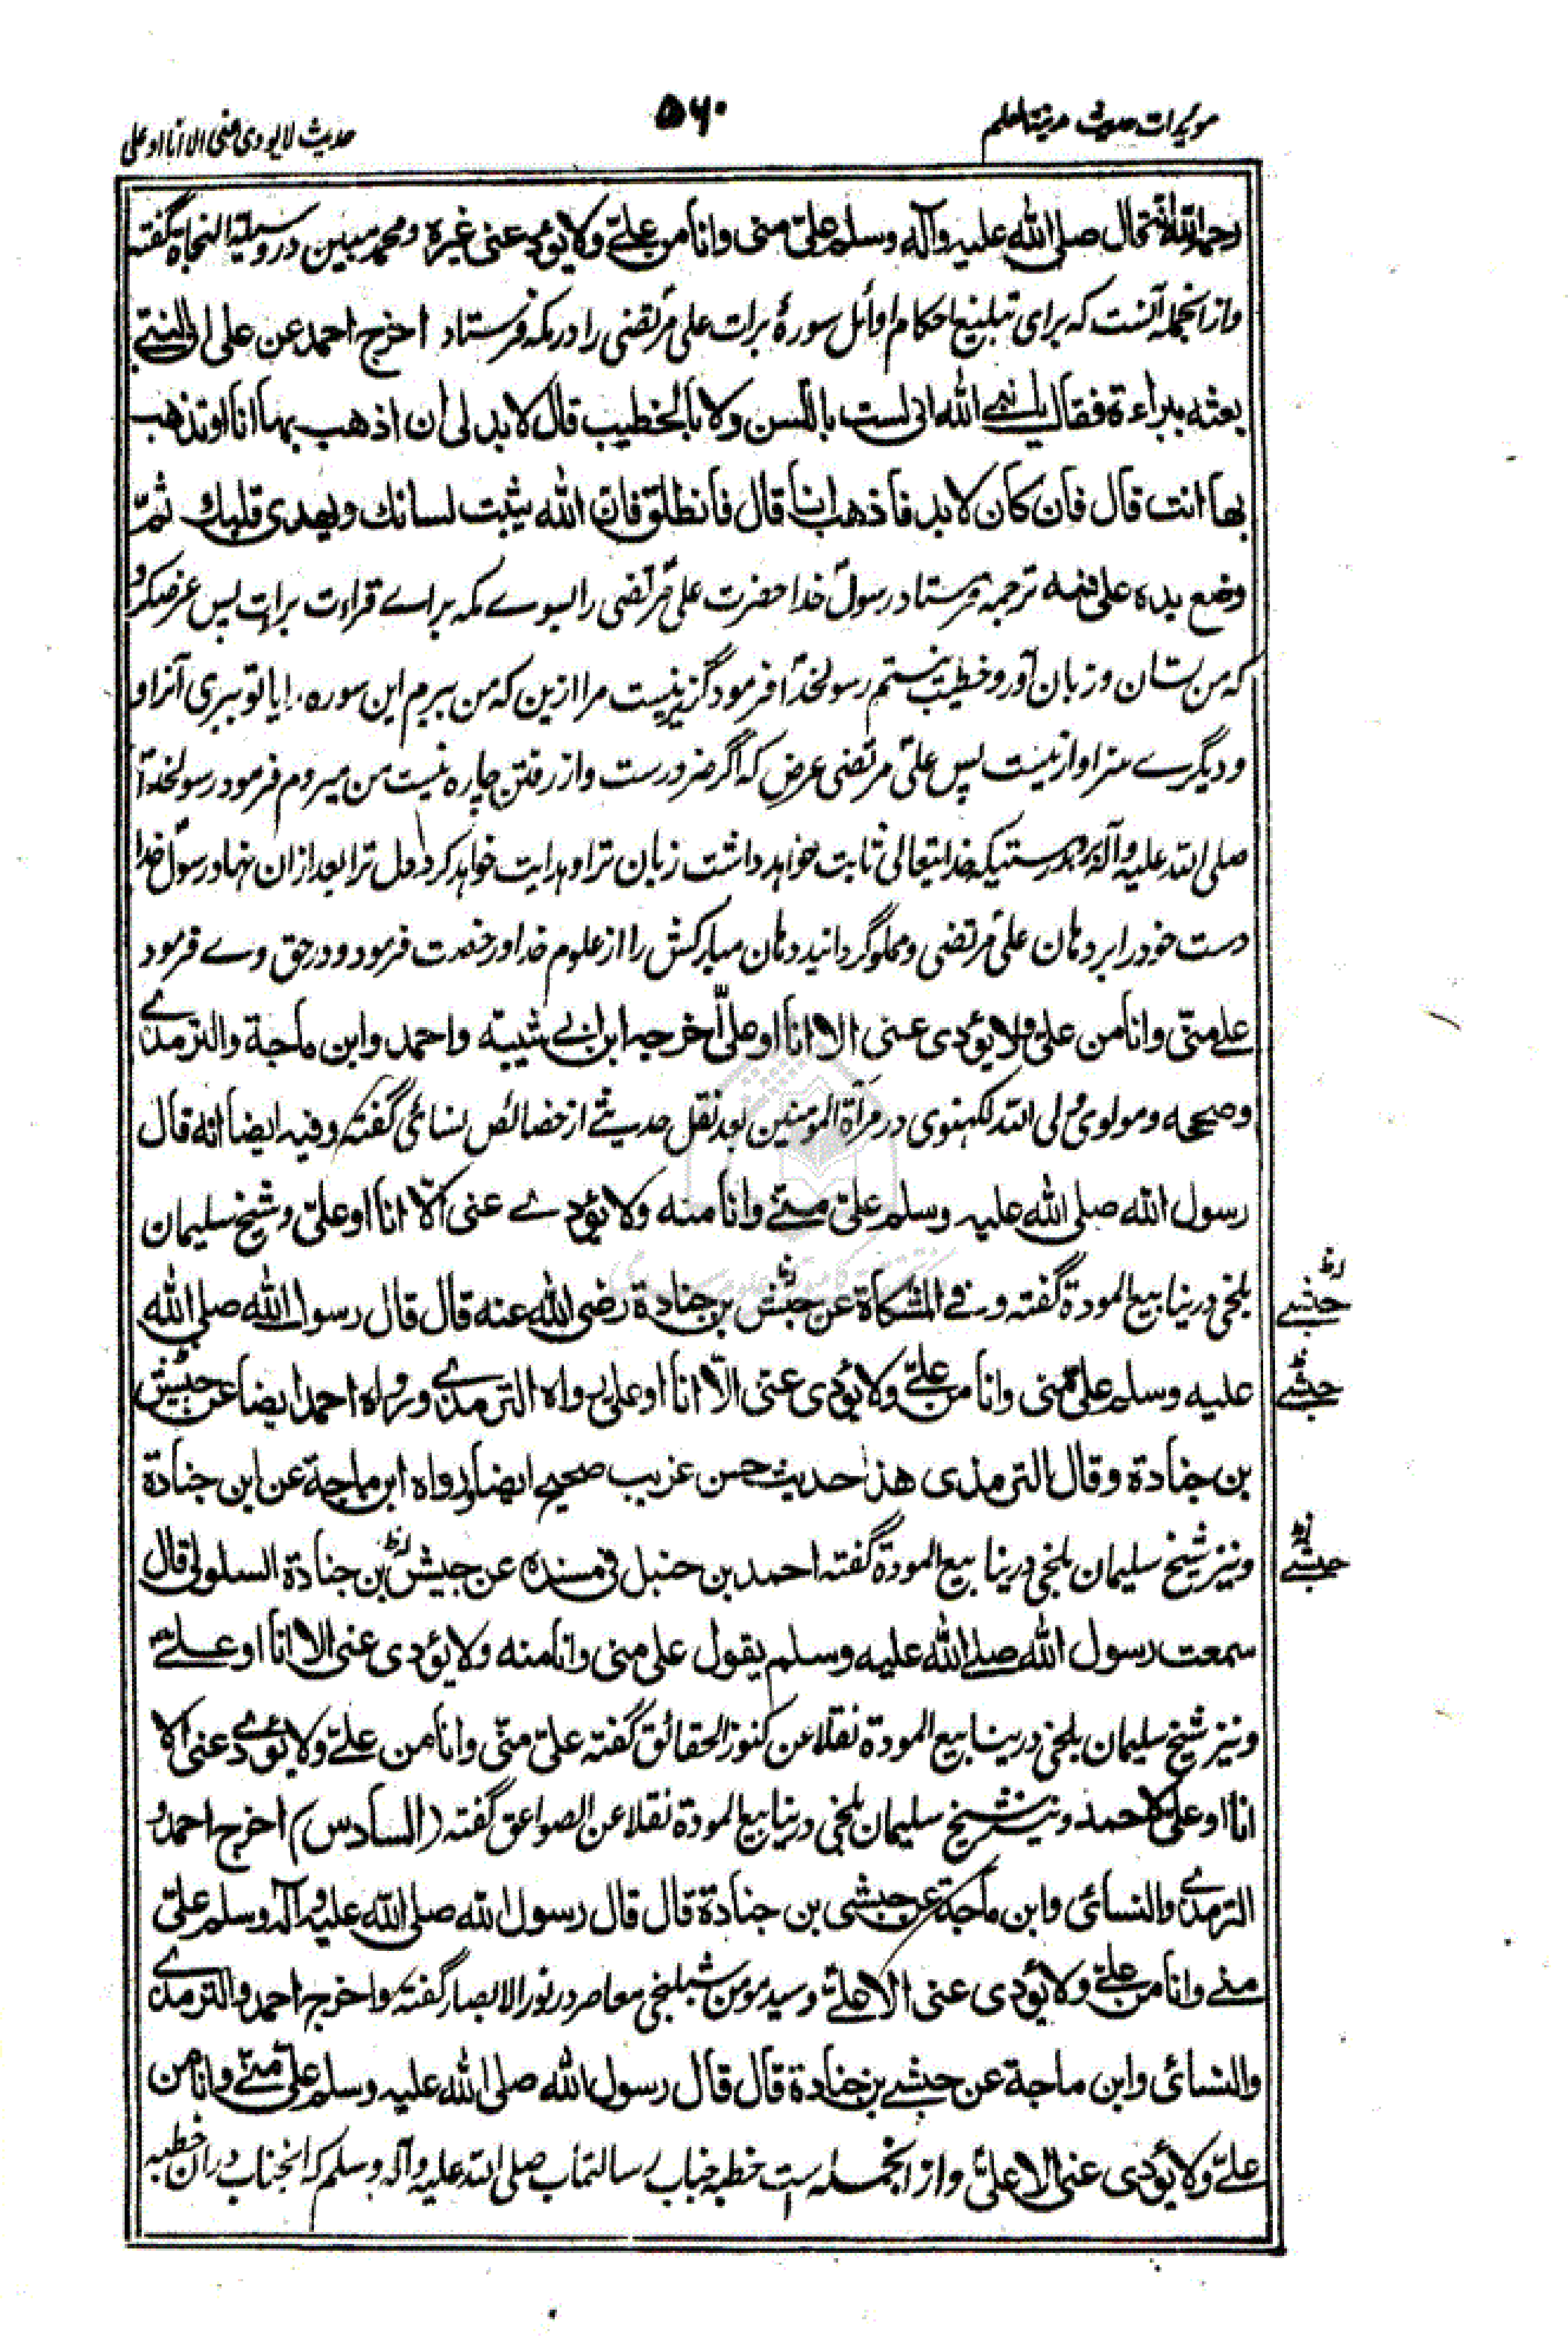 مویدات حدیث مدینة العلم
۵۶۰
حدیث لا یودی عنی الا انا او علی
رحمه الله انه قال صلى الله عليه وآله وسلم علىّ منى وانا من علىّ ولا يؤد عنى غيره ومحمد مبين در وسيلة النجاة گفته
وازانجمله آنست که برای تبلیغ احکام اوائل سورهٔ برات علی مرتضی را در مکه فرستاد اخرج احمد عن على ان النبى
بعثه ببراءة فقال يا نبى الله انى لست باللسن ولا بالخطيب قال لا بد لى ان اذهب بها انا او تذهب
بها انت قال فان كان لا بد فاذهب انا قال فانطلق فان الله يثبت لسانك ويهدى قلبك ثم
وضع يده على فمه ترجمه فرستاد رسول خدا حضرت علی مرتضی را بسوے مکه براے قراءت برات پس عرض کرد
که من لسان و زبان آور و خطیب نیستم رسولخدا فرمود گزیر نیست مرا ازین که من ببرم این سوره را یا تو ببری آنرا و
و دیگرے سزاوار نیست پس علی مرتضی عرض که اگر ضرورست و از رفتن چاره نیست من میروم فرمود رسولخدا
صلی الله علیه وآله برو بدرستیکه خدایتعالی ثابت خواهد داشت زبان ترا و هدایت خواهد کرد دل ترا بعد ازان نهاد رسول خدا
دست خود را بر دهان علی مرتضی و مملو گردانید دهان مبارکش را از علوم خدا و رخصت فرمود و در حق وے فرمود
على منّى وانا من على ولا يؤدى عنى الا انا او علىّ اخرجه ابن ابى شيبة واحمد وابن ماجة والترمذى
وصححه ومولوی ولی الله لکهنوی در مرآة المومنین بعد نقل حدیثے از خصائص نسائی گفته وفيه ايضا انه قال
رسول الله صلى الله عليه وسلم علىّ منّے وانا منه ولا يؤدے عنى الّا انا او علىّ و شیخ سلیمان
بلخی در ینابیع المودة گفته وفى المشكاة عن حبش بن جنادة رضى الله عنه قال قال رسول الله صلى الله
حبشے
عليه وسلم علىّ منى وانا من علىّ ولا يؤدى عنى الّا انا او على رواه الترمذى ورواه احمد ايضا عن حبيش
حبشے
بن جنادة وقال الترمذى هذا حديث حسن غريب صحيح ايضا رواه ابن ماجة عن ابن جنادة
ونیز شیخ سلیمان بلخی در ینابیع المودة گفته احمد بن حنبل فى مسنده عن حبيش بن جنادة السلولى قال
حبشے
سمعت رسول الله صلى الله عليه وسلم يقول على منى وانا منه ولا يؤدى عنى الا انا او علىّ
ونیز شیخ سلیمان بلخی در ینابیع المودة نقلا عن كنوز الحقائق گفته علىّ منّى وانا من علىّ ولا يؤدے عنى الا
انا او علىّ لاحمد ونیز شیخ سلیمان بلخی در ینابیع المودة نقلا عن الصواعق گفته (السادس) اخرج احمد و
الترمذى والنسائى وابن ماجة عن حبشى بن جنادة قال قال رسول الله صلى الله عليه وآله وسلم علىّ
منے وانا من علىّ ولا يؤدى عنى الا علىّ وسید مومن شبلنجی معاصر در نور الابصار گفته واخرج احمد والترمذى
والنسائى وابن ماجة عن حبشے بن جنادة قال قال رسول الله صلى الله عليه وسلم علىّ منّے وانا من
علىّ ولا يؤدى عنى الا علىّ وازانجمله است خطبه جناب رسالتمآب صلی الله علیه وآله وسلم که انجناب دران خطبه